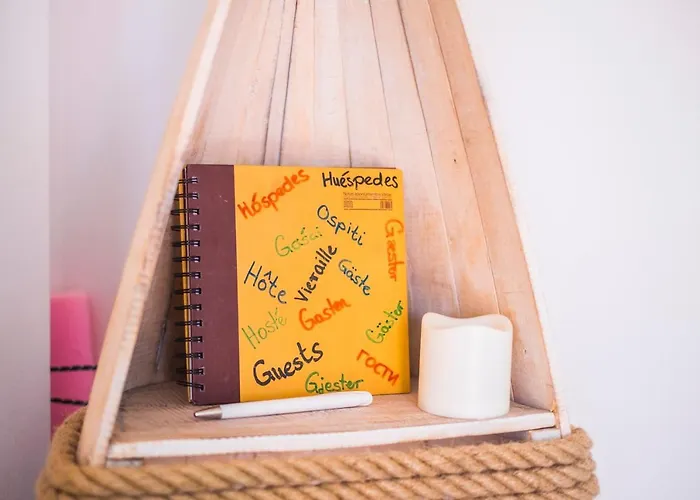 Hóspedes
Huéspedes
Ospiti
Gæster
Gości
Vieraille
Hôte
Gäste
Gasten
Hosté
Gäster
Guests
гости
Gjester